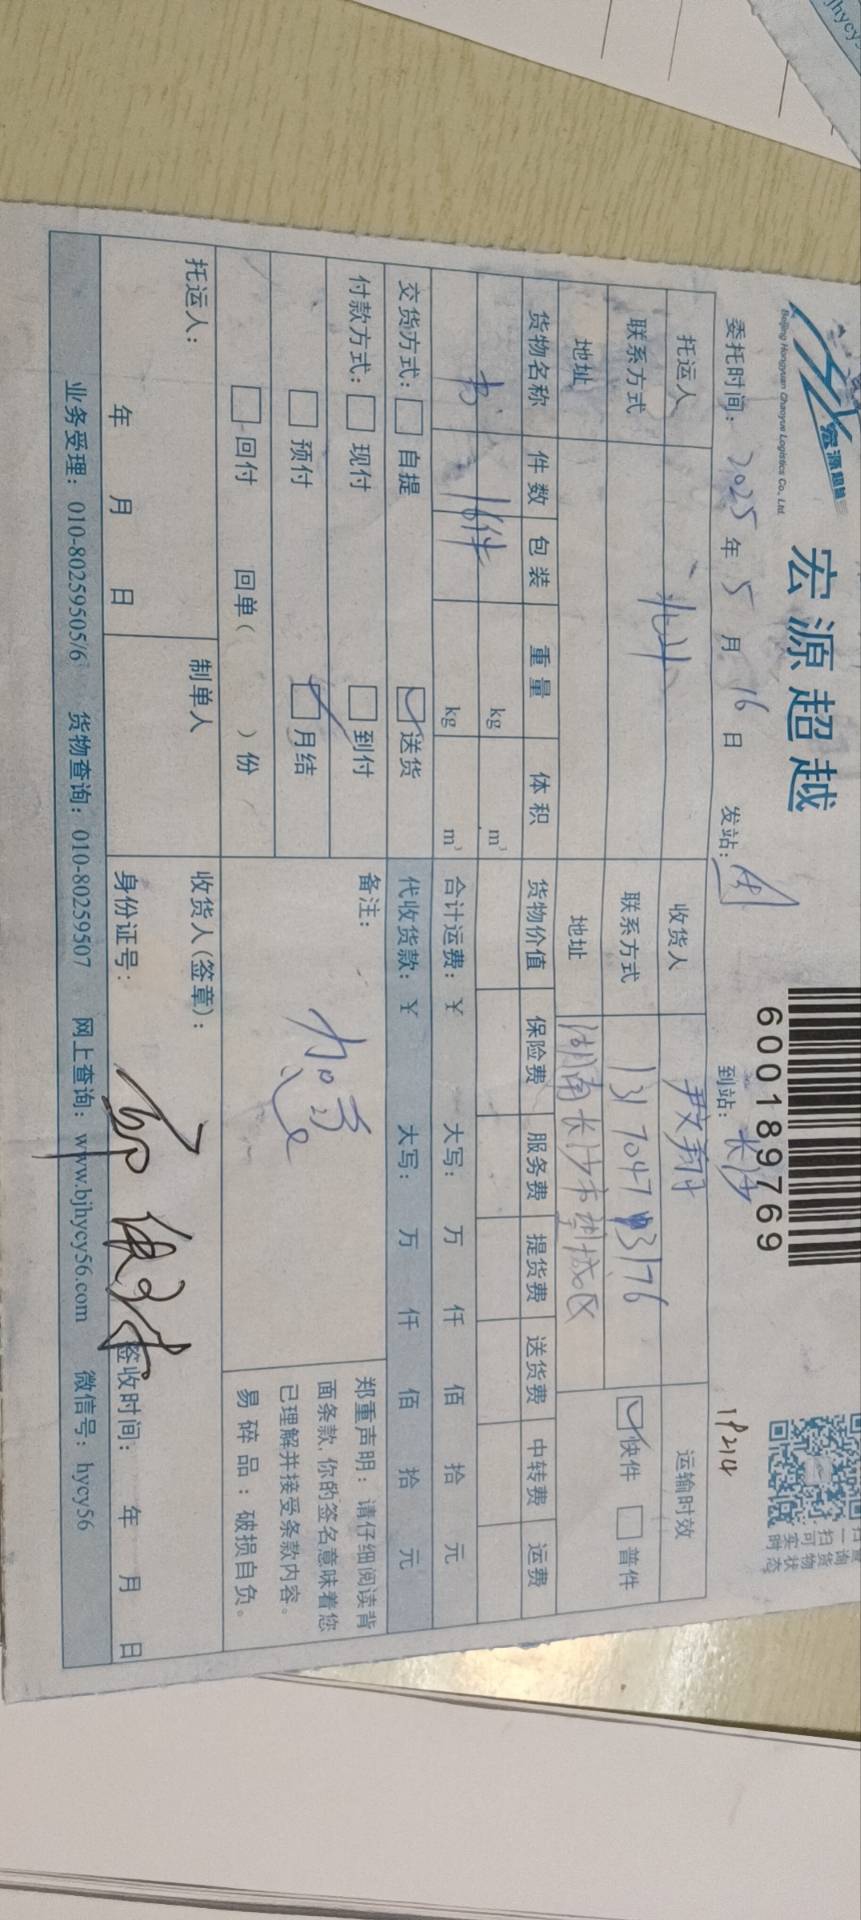 宏源超越
Beijing Hongyuan Chaoyue Logistics Co., Ltd.
宏源超越
600189769
委托时间：2025年5月16日 发站： 到站：长沙
1P214
托运人 收货人 尹文翔 运输时效
联系方式 联系方式 131 7047 3176 快件 普件
地址 地址 湖南长沙市望城区
货物名称 件数 包装 重量 体积 货物价值 保险费 服务费 提货费 送货费 中转费 运费
书 16件 kg m³
kg m³ 合计运费：￥ 大写： 万 仟 佰 拾 元
交货方式： 自提 送货 代收货款：￥ 大写： 万 仟 佰 拾 元
付款方式： 现付 到付 备注：
预付 月结 加急
回付 回单( )份
郑重声明：请仔细阅读背
面条款,你的签名意味着您
已理解并接受条款内容。
易碎品：破损自负。
托运人： 制单人 收货人(签章)：
年 月 日 身份证号： 签收时间： 年 月 日
业务受理：010-80259505/6 货物查询：010-80259507 网上查询：www.bjhycy56.com 微信号：hycy56